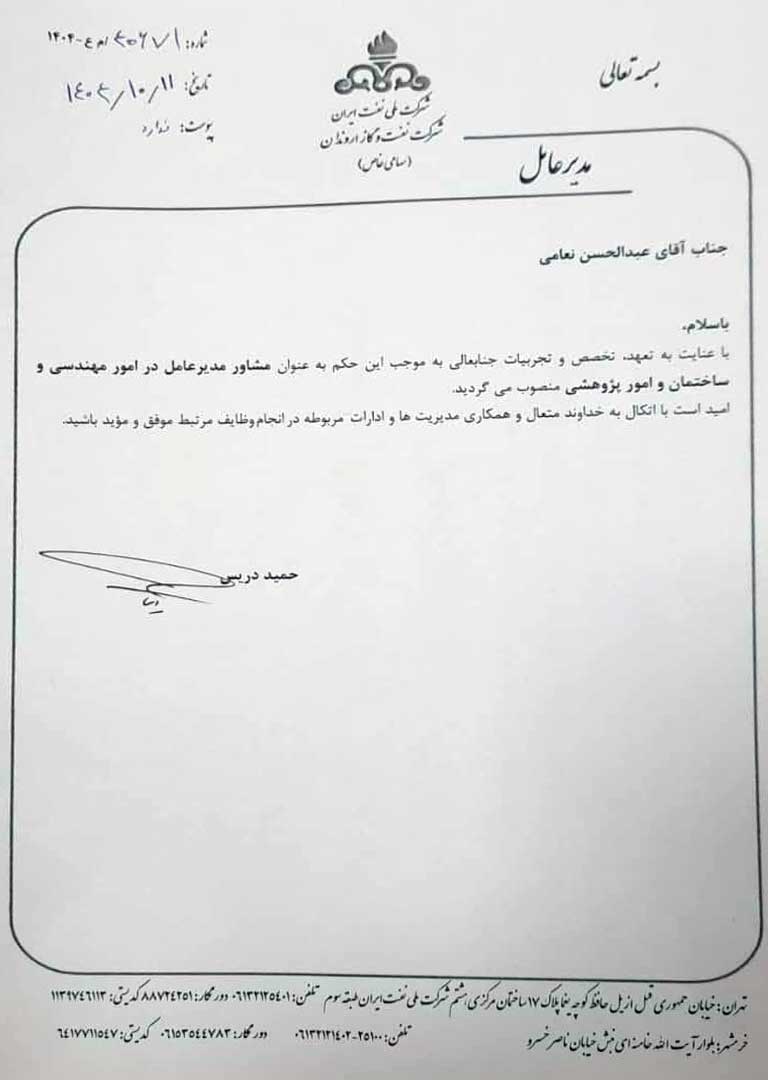 بسمه تعالی
شرکت ملی نفت ایران
شرکت نفت و گاز اروندان
(سهامی خاص)
مدیرعامل
شماره: م ع-۱۴۰۴
تاریخ: ۱۰/۱۱
پیوست: ندارد
جناب آقای عبدالحسن نعامی
باسلام،
با عنایت به تعهد، تخصص و تجربیات جنابعالی به موجب این حکم به عنوان مشاور مدیرعامل در امور مهندسی و
ساختمان و امور پژوهشی منصوب می گردید.
امید است با اتکال به خداوند متعال و همکاری مدیریت ها و ادارات مربوطه در انجام وظایف مرتبط موفق و مؤید باشید.
حمید دریس
تهران: خیابان جمهوری قبل از پل حافظ کوچه یغما پلاک ۱۷ ساختمان مرکزی هشتم شرکت ملی نفت ایران طبقه سوم تلفن: ۰۶۱۳۲۱۲۵۴۰۱ دورنگار: ۸۸۷۲۴۲۵۱ کدپستی: ۱۱۳۹۷۴۶۱۱۳
خرمشهر: بلوار آیت الله خامنه ای نبش خیابان ناصر خسرو تلفن: ۲۵۱۰۰-۰۶۱۳۲۱۲۱۴۰۲ دورنگار: ۰۶۱۵۳۵۴۴۷۸۳ کدپستی: ۶۴۱۷۷۱۱۵۴۷